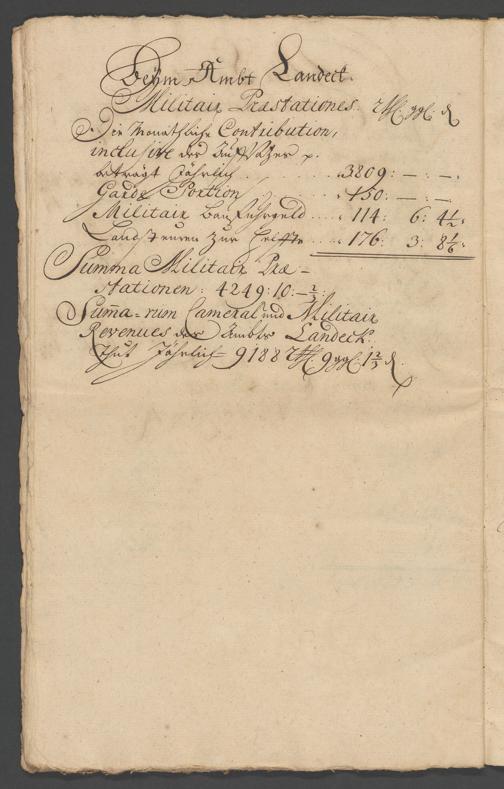 Beÿm Ambt Landeck.
Militair Præstationes. rthl. ggl. ₰
Die Monathliche Contribution,
inclusive der
beträgt Jährlich . . . . 3809: — : —
Garde Portion . . . . 150: — : —
Militair Bau Fuhrgeld . . . . 114: 6: 4½
Land Steuren zur Helffte . . 176: 3: 8⅙
Summa Militair Præ-
stationen: 4249: 10: — ⅔
Suma-rum Cameral und Militair
Revenues des Ambts Landeck.
Thut Jährlich 9188 rthl. 9 ggl. 1⅔ ₰.